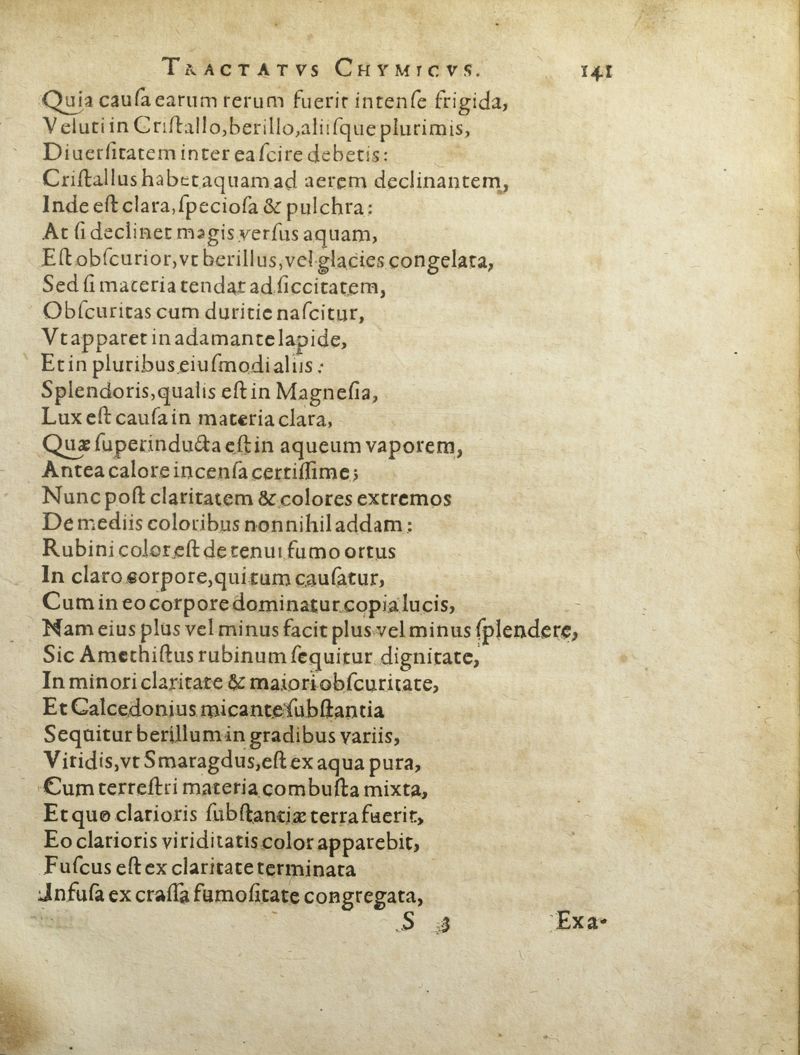 TRACTATVS CHYMICVS. 141
Quia cauſa earum rerum fuerit intenſe frigida,
Veluti in Criſtallo, berillo, aliiſque plurimis,
Diuerſitatem inter ea ſcire debetis:
Criſtallus habet aquam ad aerem declinantem,
Inde eſt clara, ſpecioſa & pulchra:
At ſi declinet magis verſus aquam,
Eſt obſcurior, vt berillus, vel glacies congelata,
Sed ſi materia tendat ad ſiccitatem,
Obſcuritas cum duritie naſcitur,
Vt apparet in adamante lapide,
Et in pluribus eiuſmodi aliis:
Splendoris, qualis eſt in Magneſia,
Lux eſt cauſa in materia clara,
Quæ ſuperinducta eſt in aqueum vaporem,
Antea calore incenſa certiſſime;
Nunc poſt claritatem & colores extremos
De mediis coloribus nonnihil addam:
Rubini color eſt de tenui fumo ortus
In claro corpore, qui tum cauſatur,
Cum in eo corpore dominatur copia lucis,
Nam eius plus vel minus facit plus vel minus ſplendere,
Sic Amethiſtus rubinum ſequitur dignitate,
In minori claritate & maiori obſcuritate,
Et Calcedonius micante ſubſtantia
Sequitur berillum in gradibus variis,
Viridis, vt Smaragdus, eſt ex aqua pura,
Cum terreſtri materia combuſta mixta,
Et quo clarioris ſubſtantiæ terra fuerit,
Eo clarioris viriditatis color apparebit,
Fuſcus eſt ex claritate terminata
Infuſa ex craſſa fumoſitate congregata,
S 3 Exa-